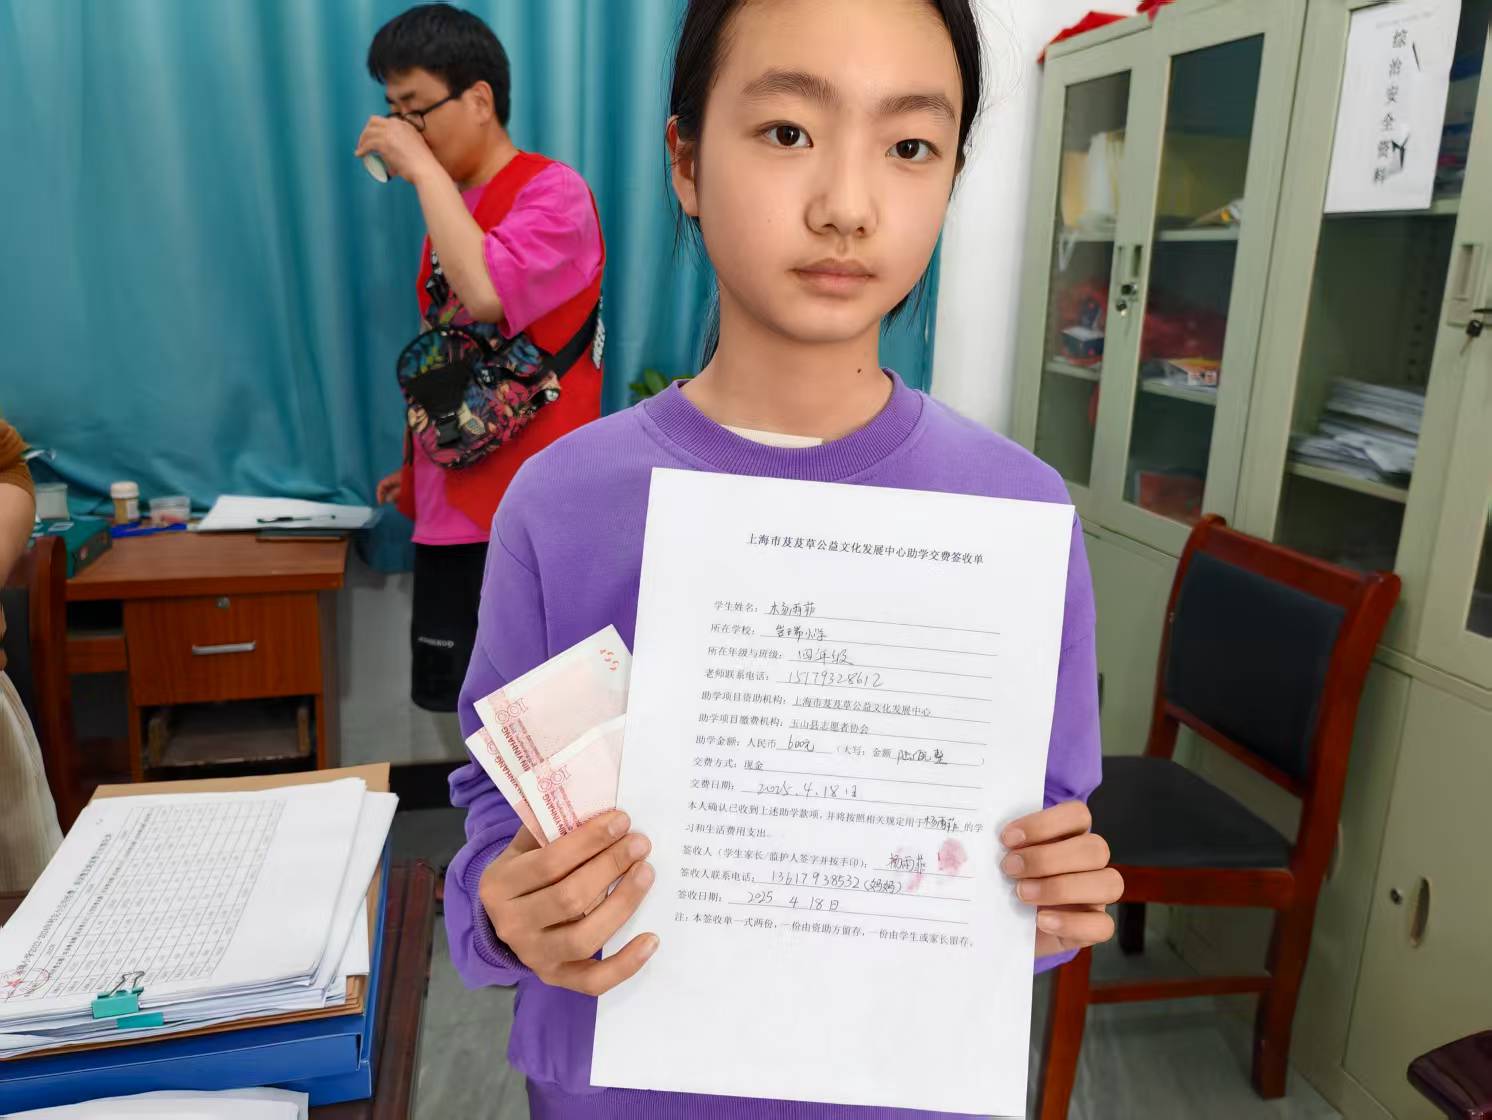 综治安全资料
上海市芨芨草公益文化发展中心助学交费签收单
学生姓名：杨雨菲
所在学校：小学
所在年级与班级：四年级
老师联系电话：15179328612
助学项目资助机构：上海市芨芨草公益文化发展中心
助学项目缴费机构：玉山县志愿者协会
助学金额：人民币 600元 （大写：金额 陆佰整 ）
交费方式：现金
交费日期：2025.4.18日
本人确认已收到上述助学款项，并将按照相关规定用于杨雨菲的学
习和生活费用支出。
签收人（学生家长/监护人签字并按手印）：杨雨菲
签收人联系电话：13617938532（妈妈）
签收日期：2025 4 18日
注：本签收单一式两份，一份由资助方留存，一份由学生或家长留存。
100
100